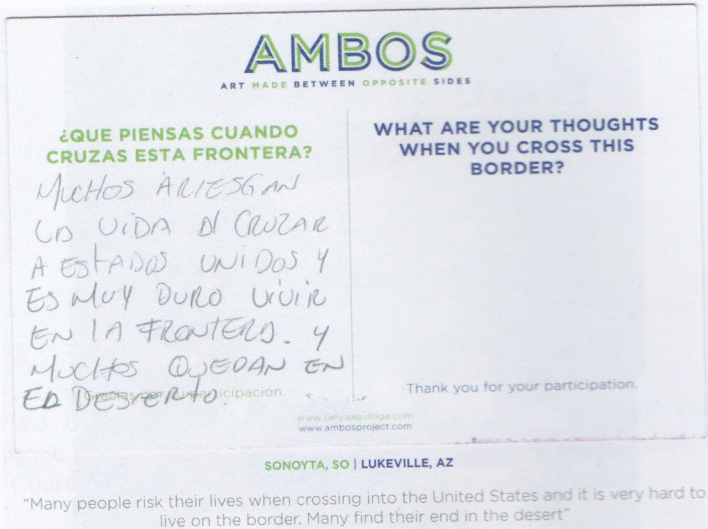 AMBOS
ART MADE BETWEEN OPPOSITE SIDES
¿QUE PIENSAS CUANDO
CRUZAS ESTA FRONTERA?
MUCHOS ARIESGAN
LA VIDA Al CRUZAR
A ESTADOS UNIDOS Y
ES MUY DURO VIVIR
EN LA FRONTERA. Y
MUCHOS QUEDAN EN
EL DESIERTO.
participación.
WHAT ARE YOUR THOUGHTS
WHEN YOU CROSS THIS
BORDER?
Thank you for your participation.
www.tanyaaguiniga.com
www.ambosproject.com
SONOYTA, SO | LUKEVILLE, AZ
"Many people risk their lives when crossing into the United States and it is very hard to
live on the border. Many find their end in the desert"